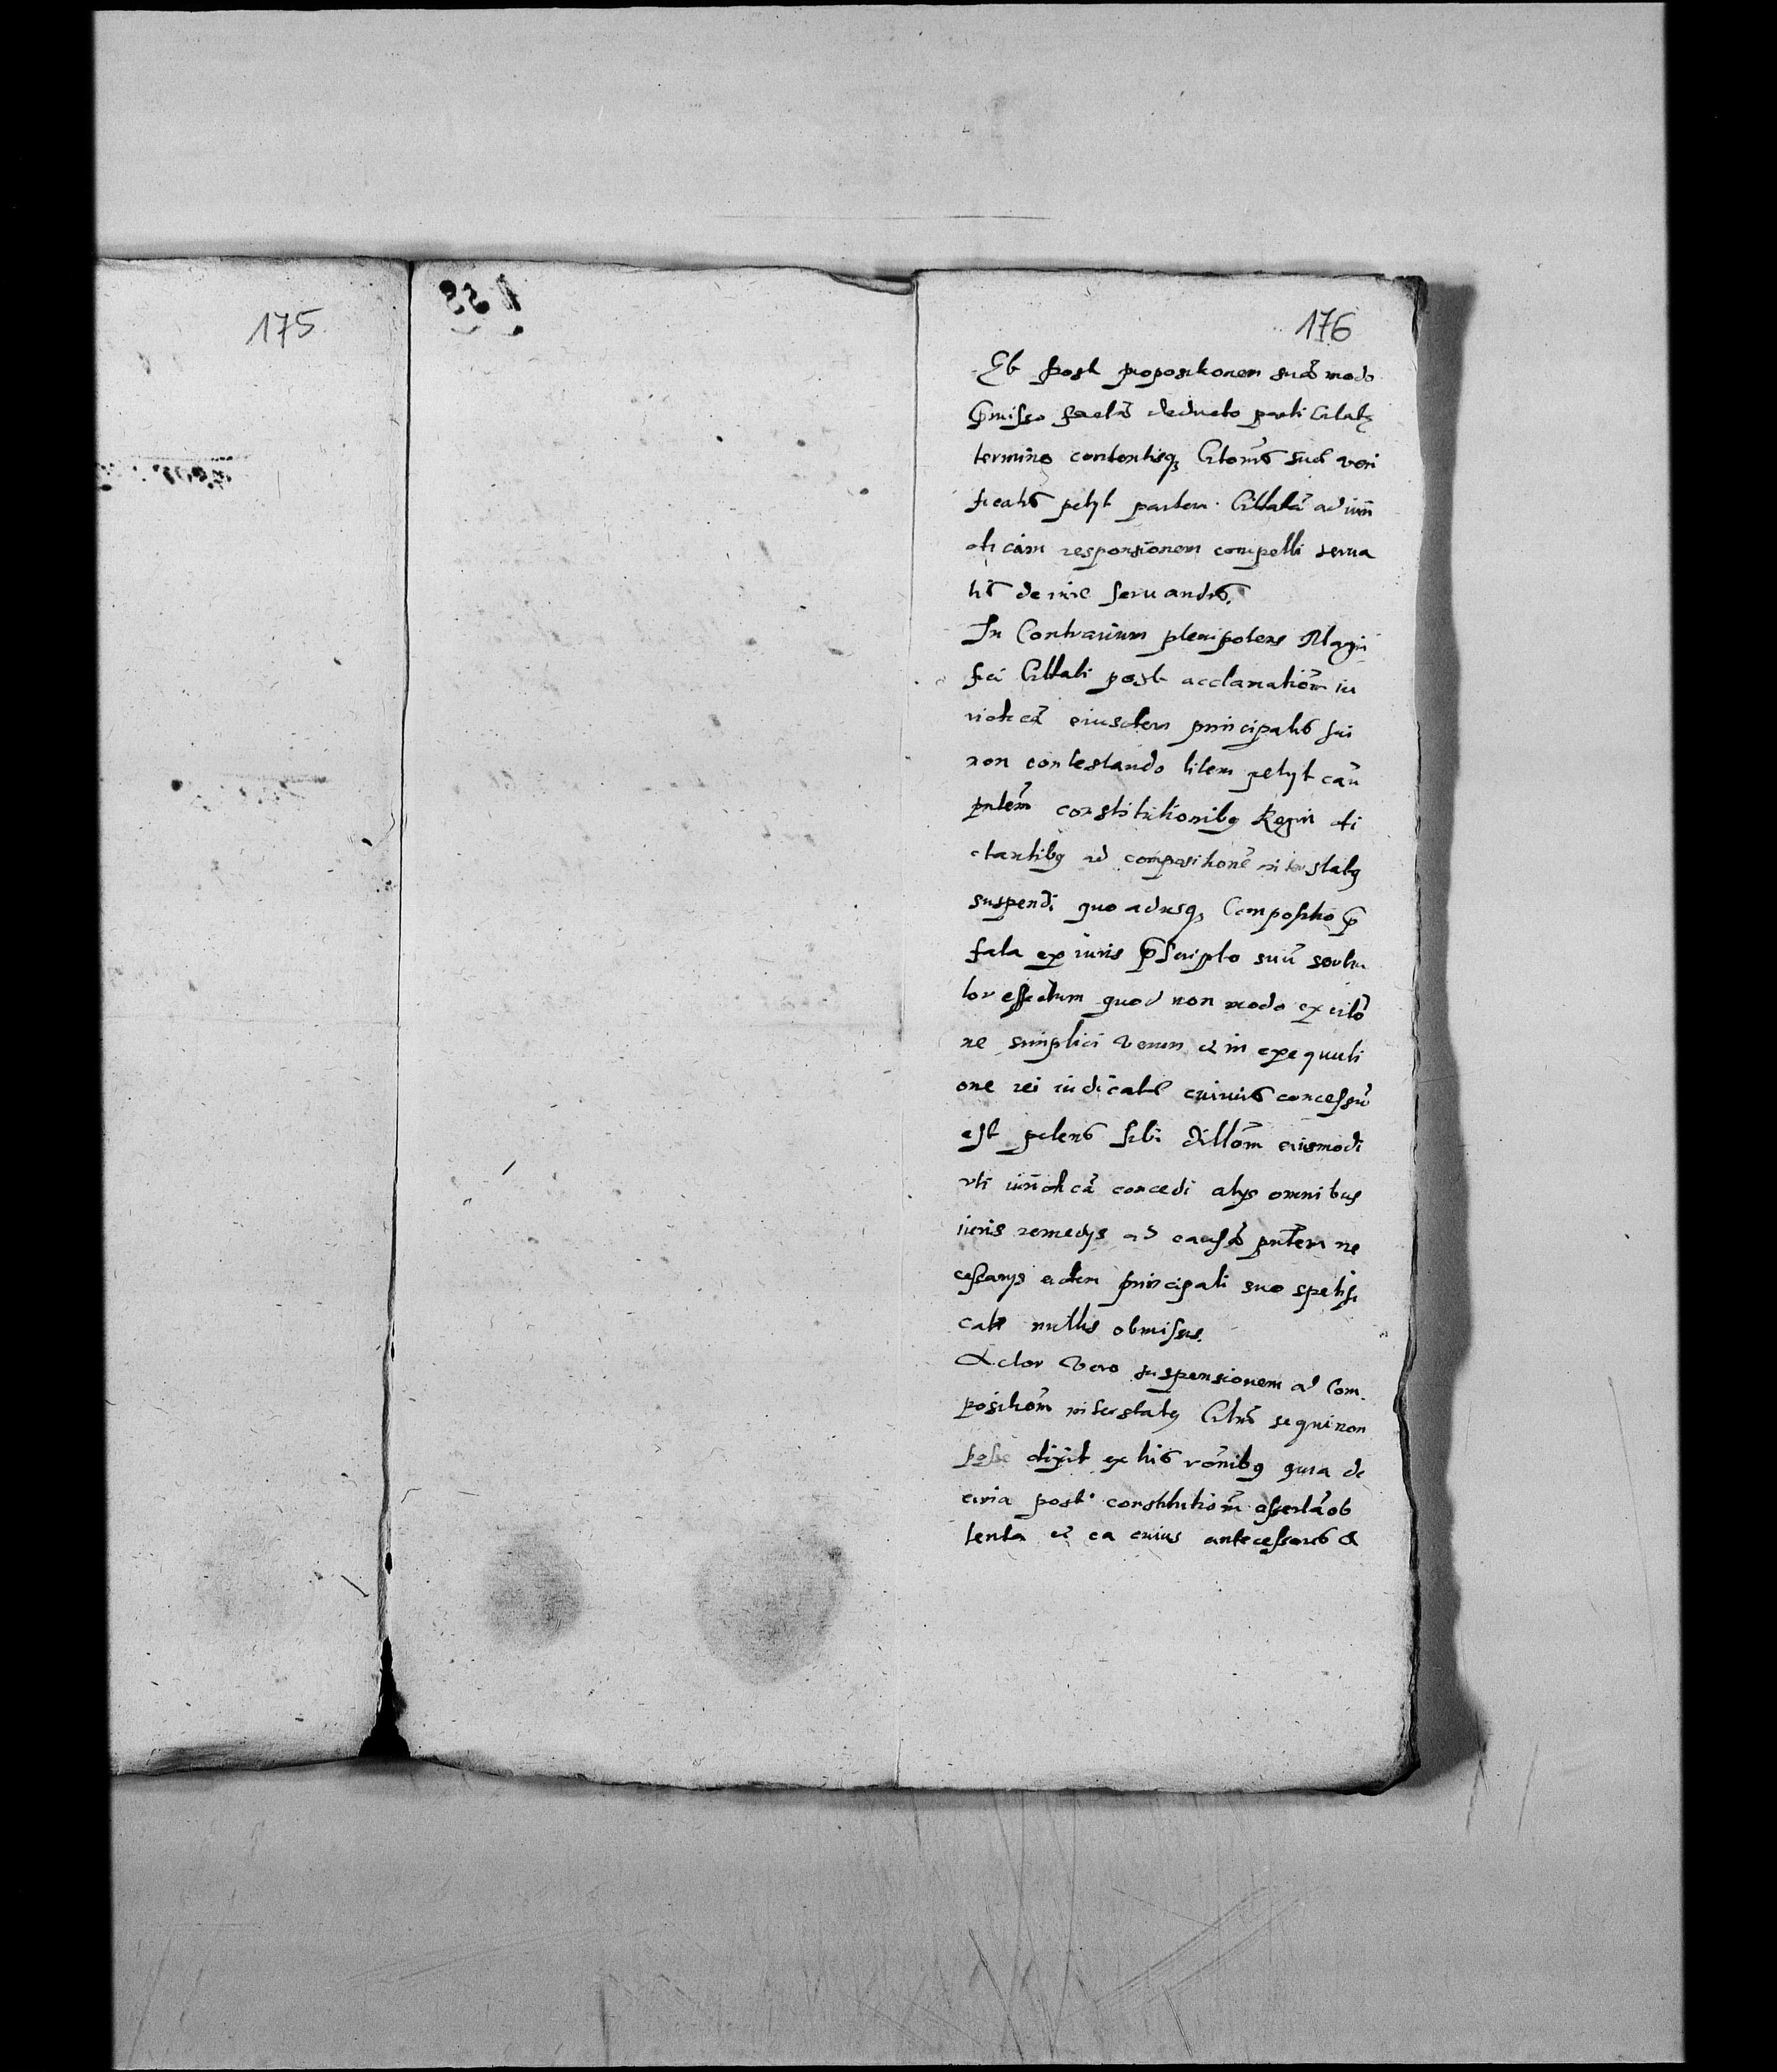 175
176
Et post propositionem suã modo
p̃misso factã deducto parti Citatę
termino contentisq₃ Citõnis suae veri
ficatis petyt partem Citatã ad iurĩ
dicãm responsionem compelli serua
tis de iure seruandis.
In Contrarium plenipotens Magni
fici Cittati post acclamatiõm iu
ridicã eiusdem principalis sui
non contestando litem petyt cãu
pñtem constitutionibꝰ Regni di
ctantibꝰ ad compositionẽ interstatꝰ
suspendi quo adusq₃ Compositio p̃
fata ex iuris p̃scripto suũ sortia
tor effectum quod non modo ex citõ
ne simplici verum et in exequuti
one rei iudicatae cuiuis concessũ
est petens sibi dillõm eiusmodi
uti iurĩdicã concedi alys omnibus
iuris remedys ad causã pñtem ne
cessarys eidem principali suo spetifi
catis nullis obmissis.
Actor vero suspensionem ad Com
positiõm interstatꝰ Citũs sequi non
posse dixit ex his rõnibꝰ quia de
ciria post constitutiõm assertã ob
tenta et ea cuius antecessoris et